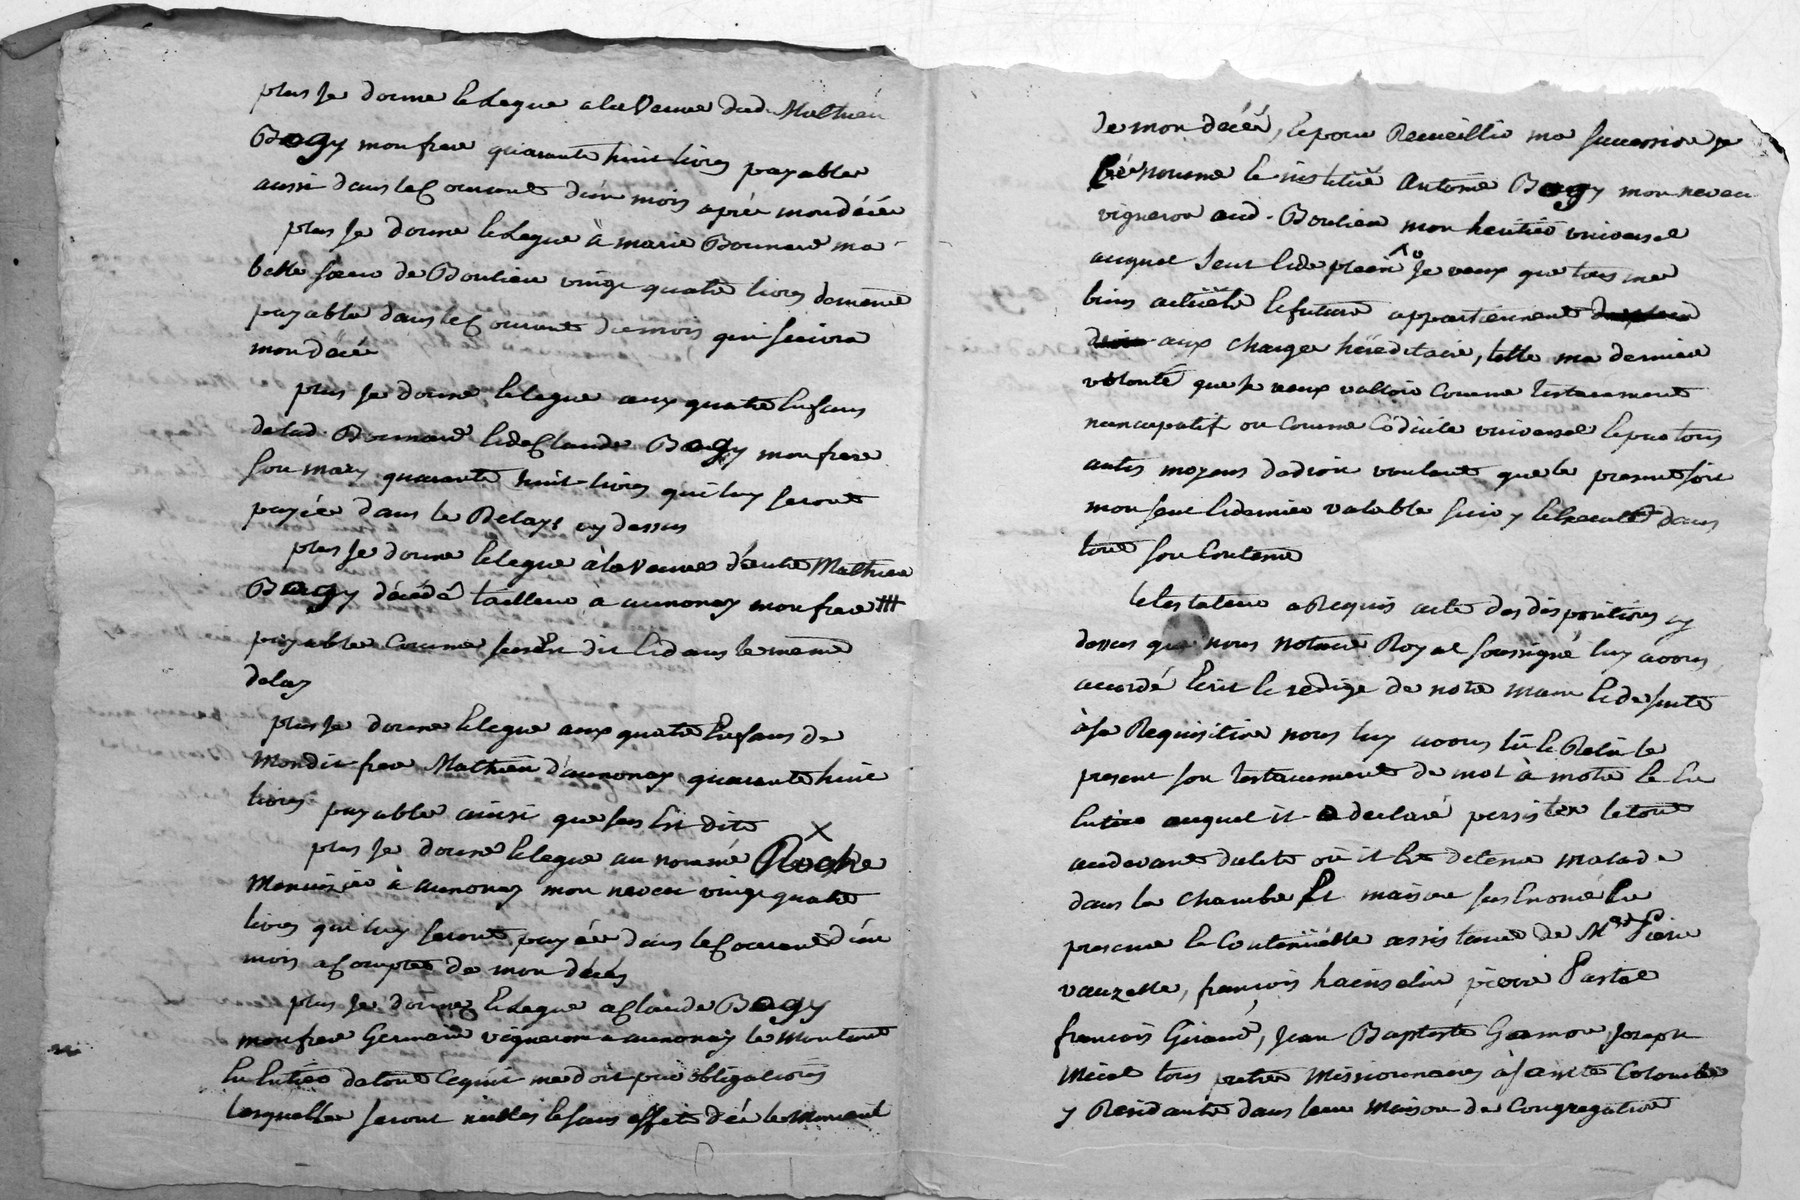 plus Je donne & Legue a la Veuve dud. Mathieu
Bogy mon frere quarante huit livres payable
aussi dans le Courant d'un mois après mon décéé
plus Je donne & Legue à marie Bonnard ma
belle sœur de Boulieu vingt quatre livres de meme
payable dans le Courant du mois qui suivra
mon decée
plus Je donne & legue aux quatre Enfans
de lad. Bonnard & de Claude Bogy mon frere
son mary quarante huit livres qui luy seront
payée dans le Delays cy dessus
plus Je donne & legue à la Veuve d'autre Mathieu
Bogy décédé tailleur a annonay mon frere ++++
payable Comme susest dit & dans le meme
delay
plus Je donne & legue aux quatre Enfans de
Mondit frere Mathieu d'annonay quarante huit
livres payable ainsi que sus Est dite
plus Je donne & legue au nommé Roche ×
Menuizier à annonay mon neveu vingt quatre
livres qui luy seront payée dans le Courant d'un
mois a Compter de mon décés
plus Je donne & Legue a Claude Bogy
mon frere Germain vigneron a annonay le Montant
En Entier de tout Ce qu'il me doit par obligations
lesquelles seront nulles & sans effet dés le Moment
de mon decéé, & pour Recueillir ma succession Je
Créé nomme & institue Antoine Bogy mon neveu
vigneron aud. Boulieu mon heritier universel
auquel seul & de plein Je veux que tous mes
biens actuels & future appartiennent
aux charges hereditaire, telle ma derniere
volonté que Je veux valloir Comme testament
nuncupatif ou Comme Codicile universel & par tous
autres moyens de droit voulant que le present soit
mon seul & dernier valable suivy & Executé dans
tout son Contenu
le testateur a Requis acte des dispositions cy
dessus que nous notaire Royal soussigné luy avons
accordé Ecrit & redige de notre main & de suite
à sa Requisition nous luy avons lû & Relû le
present son testament de mot à mot & En
Entier auquel il a declaré persister le tout
au devant du lit où il Est detenu malade
dans la chambre Et maison sus Enoncé En
presence & Continuelle assistance de Mre Piere
vauzelle, françois hainselin pierre Pastel
françois Giraud, Jean Baptiste Joseph
Micel tous pretres Missionnaires à sainte Colombe
y Residants dans leur Maison de Congregation